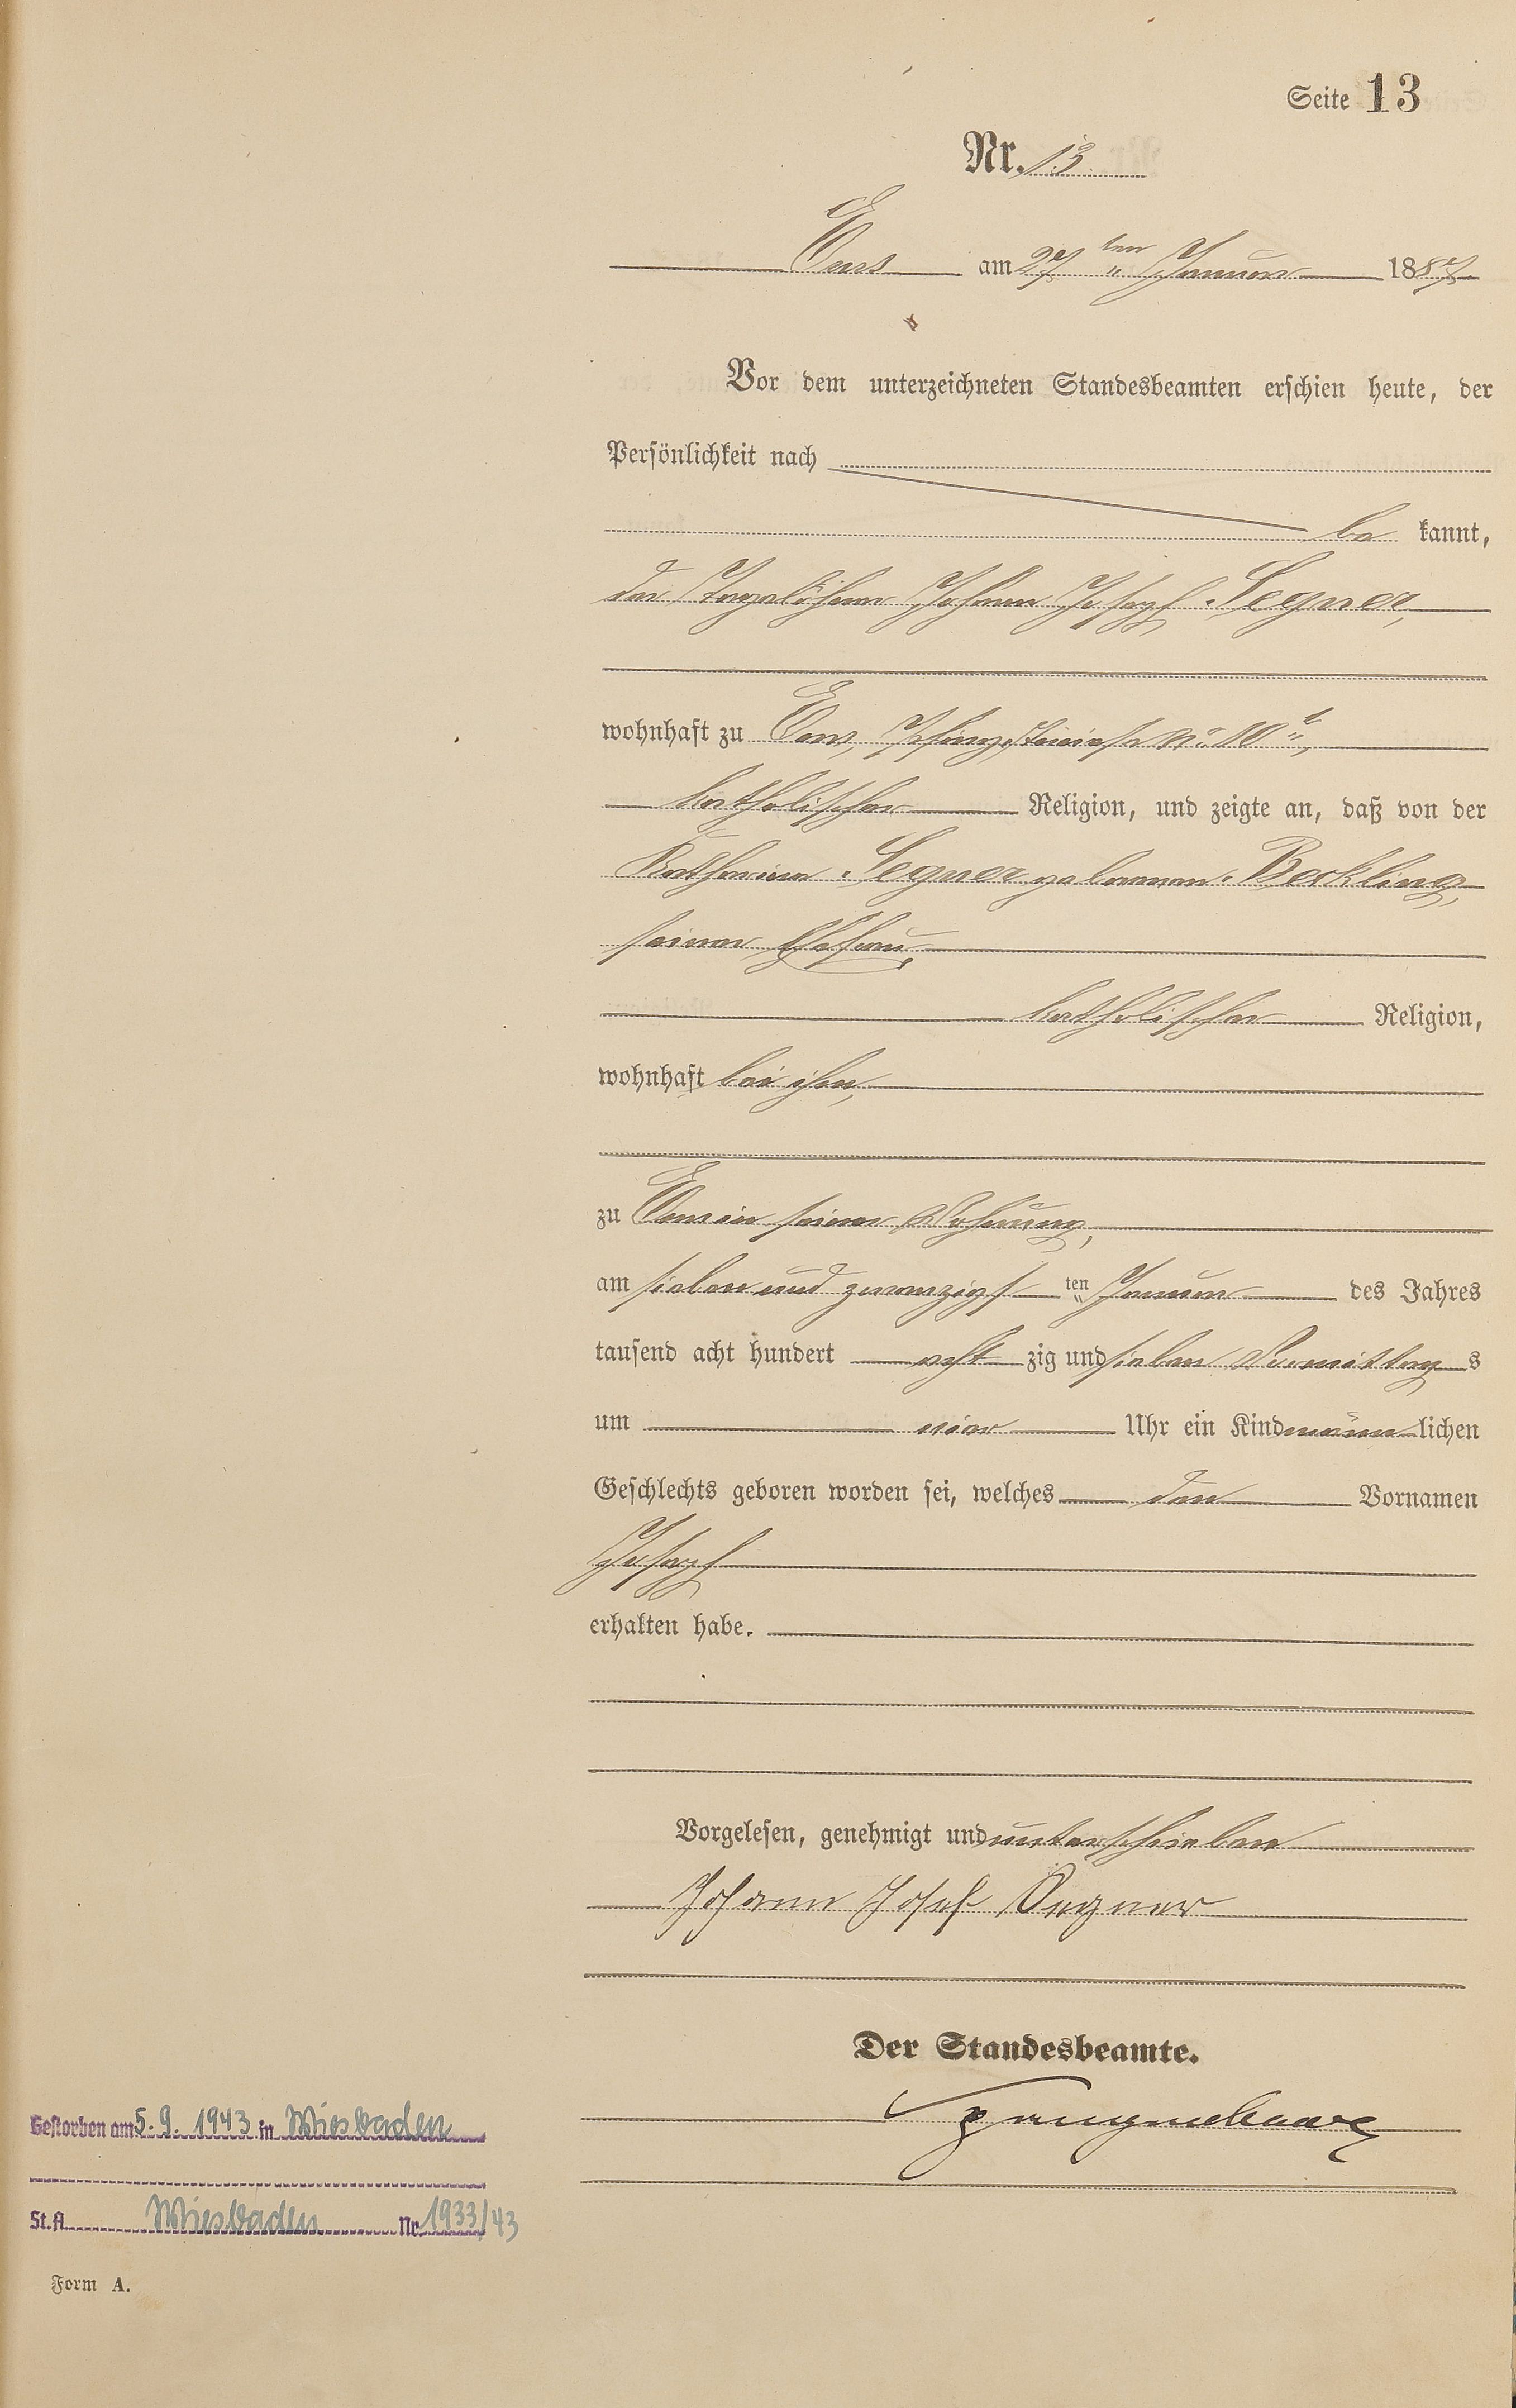 Seite 13
Nr. 13
Ems am 27 ten Januar 1887.
Vor dem unterzeichneten Standesbeamten erschien heute, der
Persönlichkeit nach
be kannt,
der Tagelöhner Johann Joseph Segner,
wohnhaft zu Ems, No. 10
katholischer Religion, und zeigte an, daß von der
Katharina Segner geborenen Beckling,
seiner Ehefrau,
katholischer Religion,
wohnhaft bei ihm,
zu Ems in seiner Wohnung,
am sieben und zwanzigsten Januar des Jahres
tausend acht hundert acht zig und sieben Vormittags
um vier Uhr ein Kind männlichen
Geschlechts geboren worden sei, welches den Vornamen
Joseph
erhalten habe.
Vorgelesen, genehmigt und unterschrieben
Johann Josef Segner
Der Standesbeamte.
Gestorben am 5. 9. 1943 in Wiesbaden
St. A. Wiesbaden Nr. 1933/43
Form A.